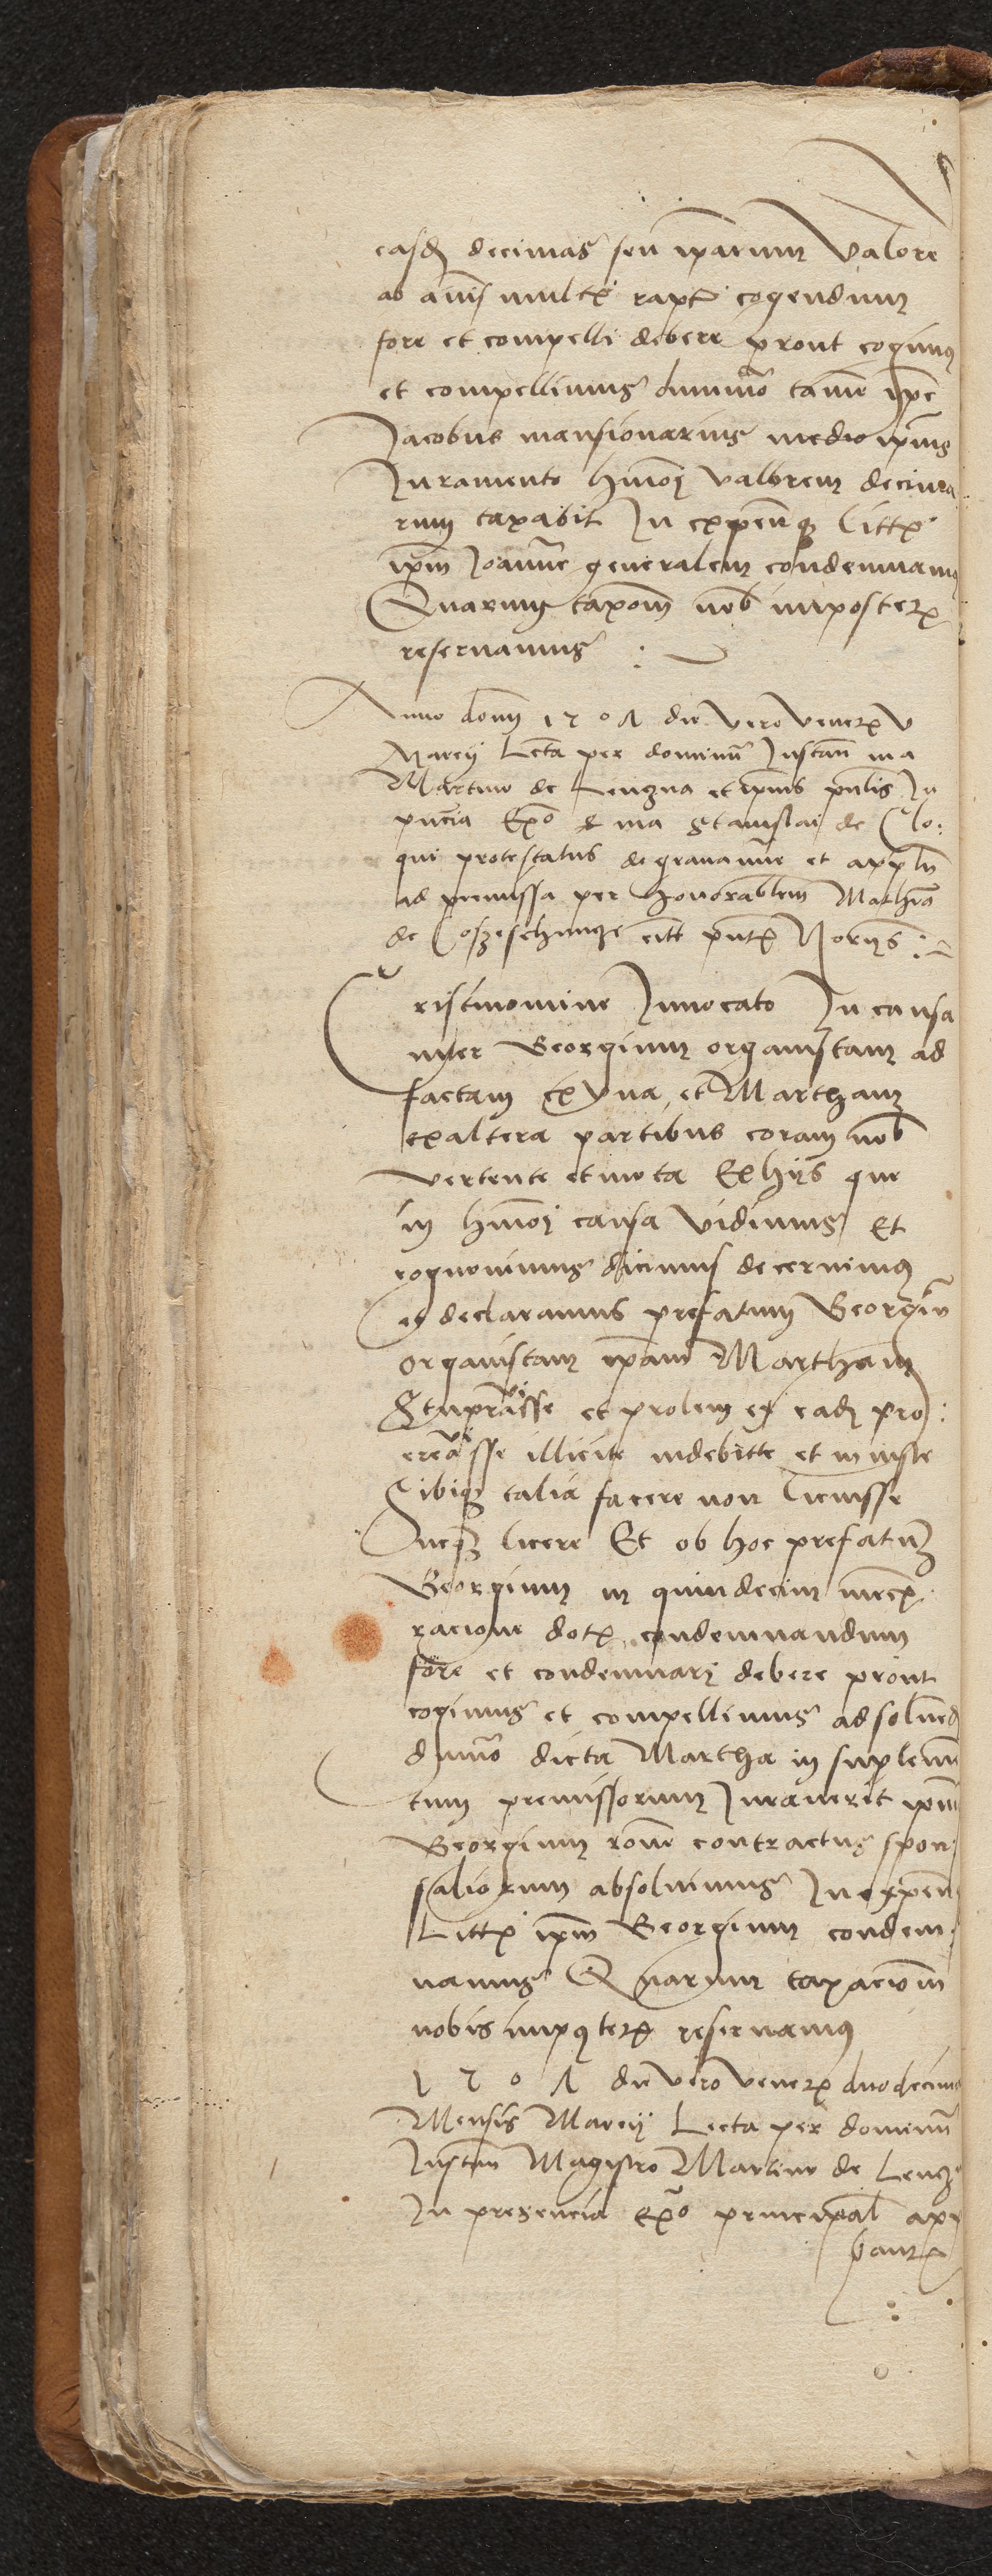 easd decimas seu iparum Valore
ab annis multis rapt cogendum
fore et compelli debere prout cogimus
et compellimus dummo tame ipe
Jacobus mansionarius medio ipius
Juramento hmoi valorem decima
rum taxabit In expensisque littis
ipm Joanne generalem condemnamus
Quarum taxom nob imposterum
reservamus
Anno domi 1501 die vero veneris v
Marcij Lecta per dominum Instan ma
Martino de et ipius pntis In
pncia Exo ma Stanislai de Clo:
qui protestatus de gravamine et appln
ad premissa per honorablem Mathia
de pntis Norijs
Cristi nomine Invocato In causa
inter Georgium organistam ad
factam ex vna et Martham
ex altera partibus coram nob
vertente et mota Ex hijs que
in hmoi causa vidimus Et
cognovimus dicimus decernimus
et declaramus prefatum Georgium
organistam ipam Martham
Stuprasse et prolem ex eadem pro:
creasse illicite indebitte et iniuste
Sibique talia facere non licuisse
Necque licere Et ob hoc prefatum
Georgium in quindecim mrcis
racione dotis condemnandum
fore et condemnari debere prout
cogimus et compellimus ad solvend
dummo dicta Martha in suplemen
tum premissorum Juraverit ipm
Georgium rone contractus spon
saliorum absolvimus In expen
Littis ipm Georgium condem
namus Quarum taxacionem
nobis imposterum reservamus
1501 die vero veneris duodecima
Mensis Marcij Lecta per dominum
Instan Magistro Martino de Lencz
In presencia Exo principal app
bantis